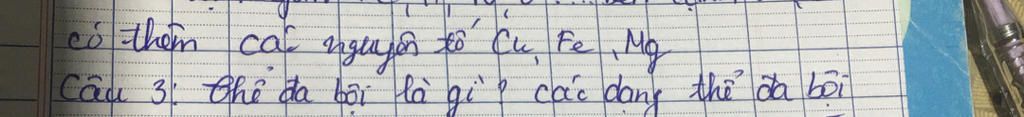 có thêm các nguyên tố Cu, Fe, Mg
Câu 3: Thể đa bội là gì? các dạng thể đa bội